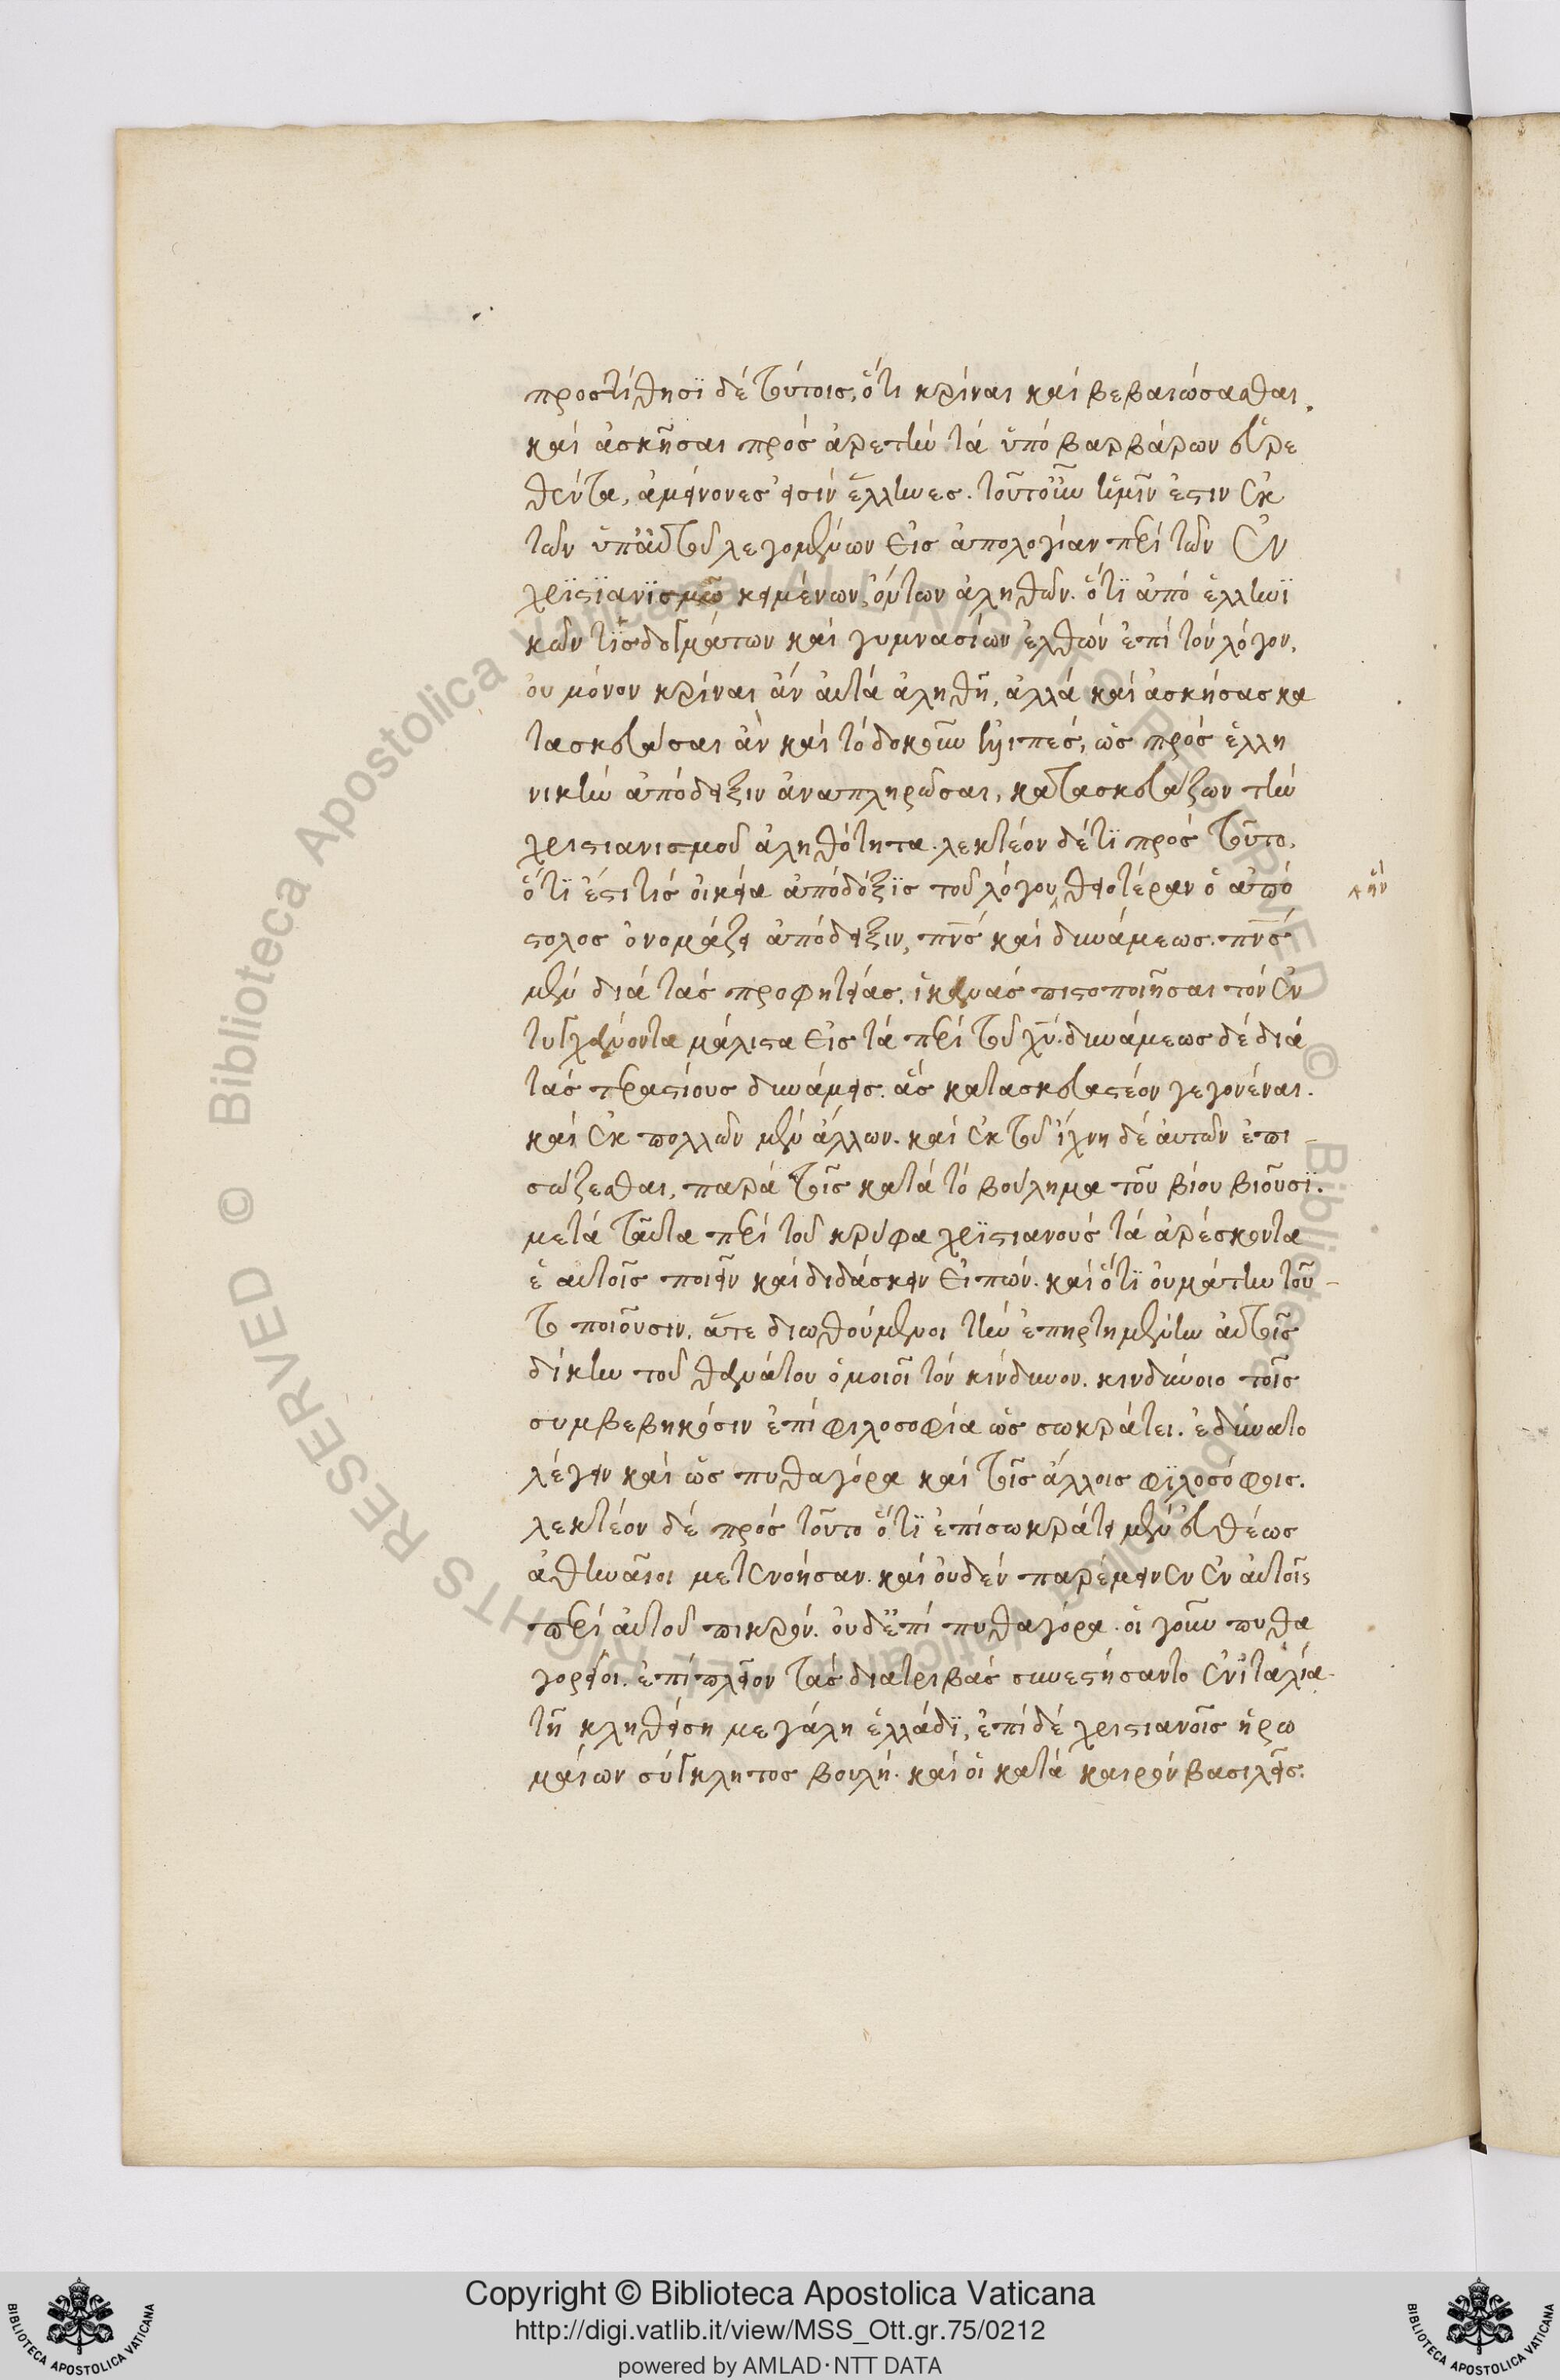 προστίθησϊ δέ τούτοισ, ὅτι κρίναι καί βεβαιώσασθαι,
καί ἀσκῆσαι πρός ἀρετήν τά ὑπό βαρβάρων εὑρε
θέντα, ἀμείνονεσ εἰσίν ἕλληνεσ. τοῦτο οὖν ἡμῖν ἐστιν ἐκ
τῶν ὑπ' αὐτοῦ λεγομένων εἰσ ἀπολογίαν περί τῶν ἐν
χρϊστϊανϊσμῶ κειμένων, ὄντων ἀληθῶν. ὅτϊ ἀπό ἑλληνϊ
κῶν τϊσ δογμάτων καί γυμνασίων ἐλθών ἐπί τόν λόγον,
ου μόνον κρίναι ἄν αὐτά ἀληθῆ, ἀλλά καί ἀσκήσας κα
τασκευάσαι ἄν καί τό δοκοῦν ἐλλιπές, ὡς πρός ἑλλη
νικήν ἀπόδειξιν ἀναπληρῶσαι, κατασκευάζων τήν
χριστιανισμοῦ ἀληθότητα. λεκτέον δέ τϊ πρός τοῦτο,
ὅτϊ ἔστι τισ οἰκεία ἀπόδόξϊσ τοῦ λόγου, θειοτέραν ὁ ἀπό
ἥν
στολοσ ὀνομάζει ἀπόδειξιν, πν̅ς καί δυνάμεωσ. πν̅ς
μέν διά τάς προφητείασ, ἱκανάς πιστοποιῆσαι τόν ἐν
τυγχάνοντα μάλιστα εἰσ τά περί τοῦ χ̅υ. δυνάμεωσ δέ διά
τάς τεραστίουσ δυνάμεισ. ἅς κατασκευαστέον γεγονέναι.
καί ἐκ πολλῶν μέν ἄλλων. καί ἐκ τοῦ ἴχνη δέ ἀυτῶν ἔτι
σώζεσθαι, παρά τοῖσ κατά τό βούλημα τοῦ βίου βιοῦσϊ.
μετά ταῦτα περί τοῦ κρύφα χρϊστιανούς τά ἀρέσκοντα
ἑ αυτοῖσ ποιεῖν καί διδάσκειν εἰπών. καί ὅτϊ ὀυ μάτην τοῦ
το ποιοῦσιν, ἅτε διωθούμενοι τήν ἐπηρτημένην ἀυτοῖσ
δίκην τοῦ θανάτου ὁμοιοῖ τόν κίνδυνον. κινδύνοισ τοῖσ
συμβεβηκόσιν ἐπί φιλοσοφία ὡς σωκράτει. ἐδύνατο
λέγειν καί ὡς πυθαγόρα καί τοῖσ ἄλλοισ φϊλοσόφοισ.
λεκτέον δέ πρός τοῦτο ὅτϊ ἐπί σωκράτει μέν ἐυθέωσ
ἀθηναῖοι μετενοήσαν. καί ὀυδέν παρέμεινεν ἐν ἀυτοῖς
περί ἀυτοῦ πικρόν. ὀυδ' ἐπί πυθαγόρα. ὁι γοῦν πυθα
γορείοι. ἐπί πλεῖον τάς διατριβάς συνεστήσαντο ἐν ἰταλία
τῆ κληθείση μεγάλη ἑλλάδϊ, ἐπί δέ χριστιανοῖσ ἡ ρω
μαίων σύγκλητοσ βουλή. καί ὁι κατά καιρόν βασιλεῖσ.
Copyright © Biblioteca Apostolica Vaticana
http://digi.vatlib.it/view/MSS_Ott.gr.75/0212
powered by AMLAD·NTT DATA